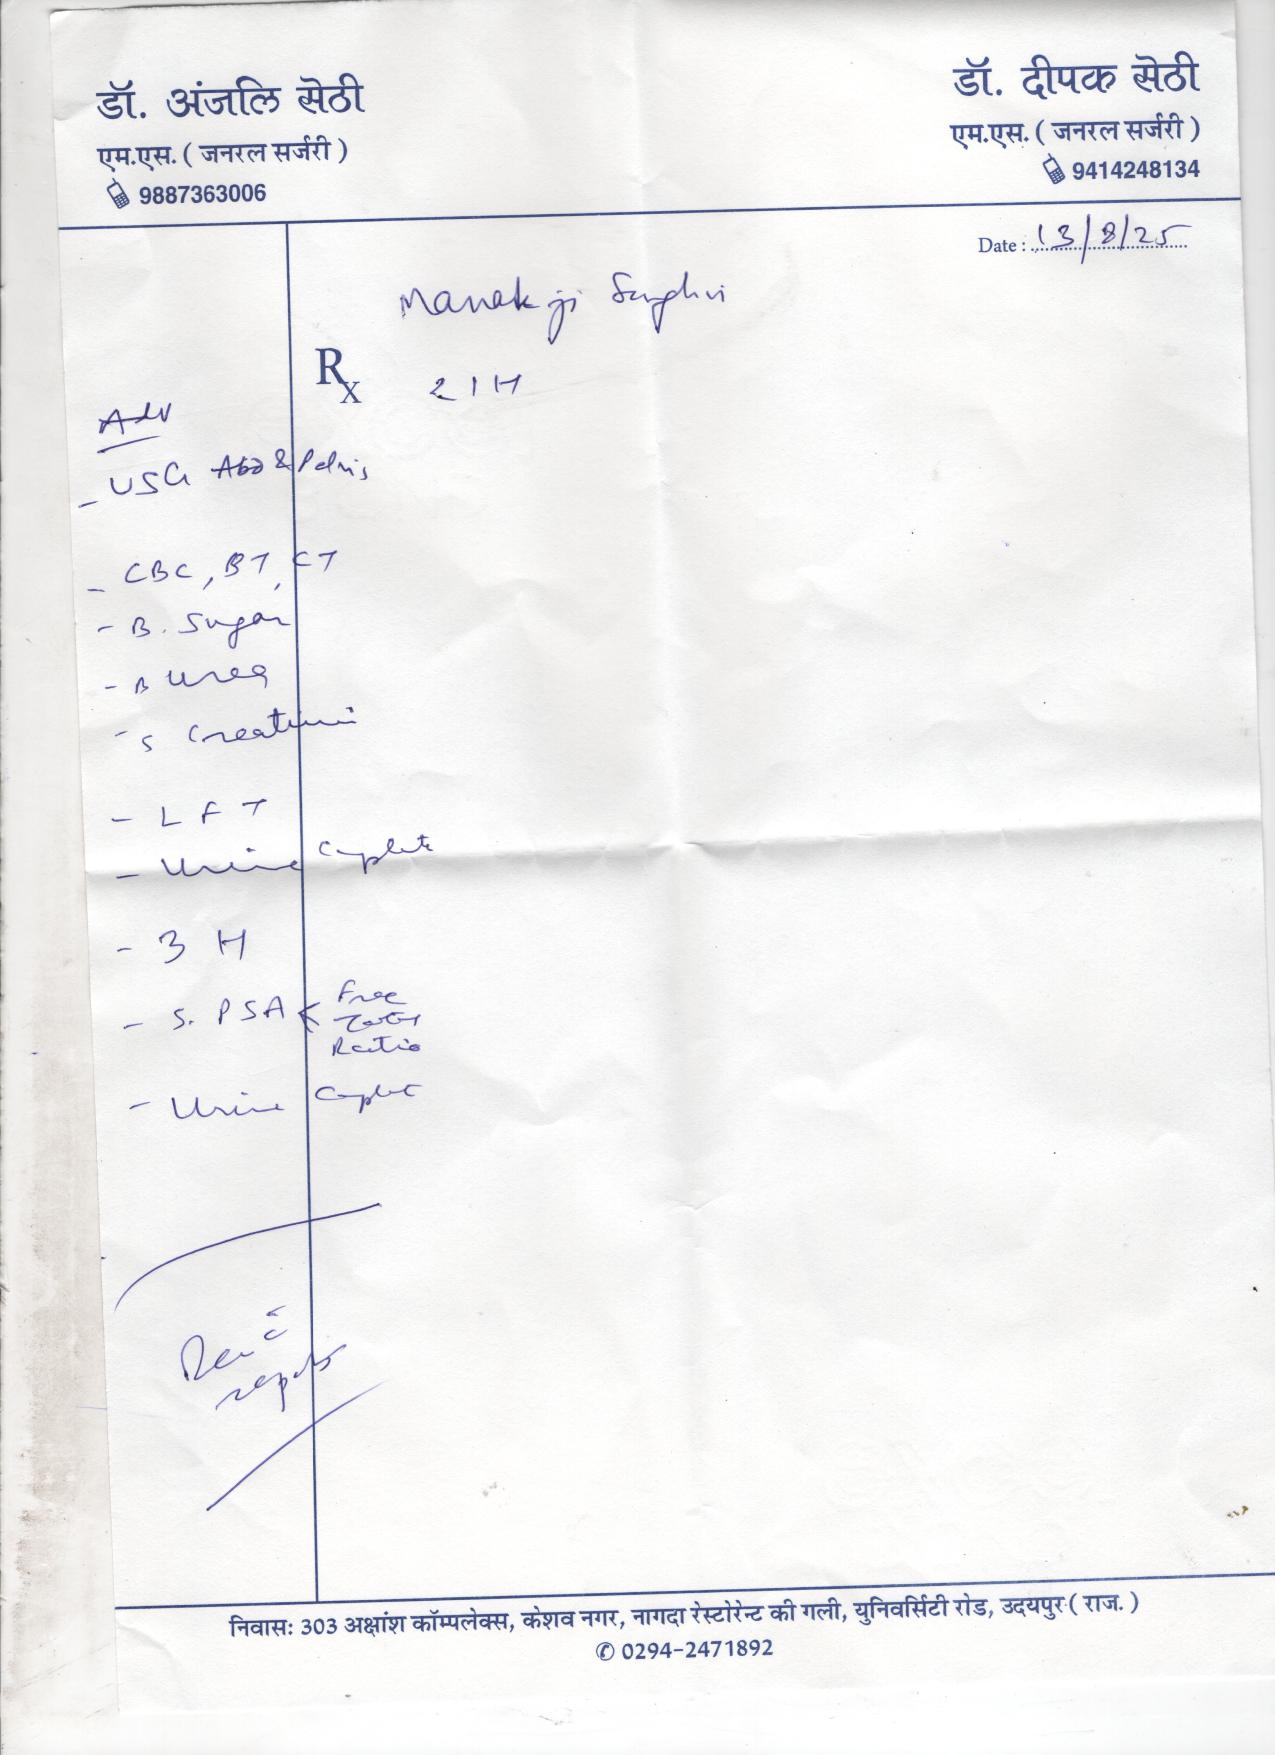 डॉ. अंजलि सेठी
एम.एस. ( जनरल सर्जरी )
9887363006
डॉ. दीपक सेठी
एम.एस. ( जनरल सर्जरी )
9414248134
Date : 13/8/25
Manak ji
Rx
Adv
- USG Abd & Pelvis
- CBC, BT, CT
- B. Sugar
- B Urea
- S Creatinine
- LFT
- Urine Complete
- 3 H
- S. PSA < Free
Total
Ratio
- Urine Complete
reports
निवासः 303 अक्षांश कॉम्पलेक्स, केशव नगर, नागदा रेस्टोरेन्ट की गली, युनिवर्सिटी रोड, उदयपुर ( राज. )
✆ 0294-2471892